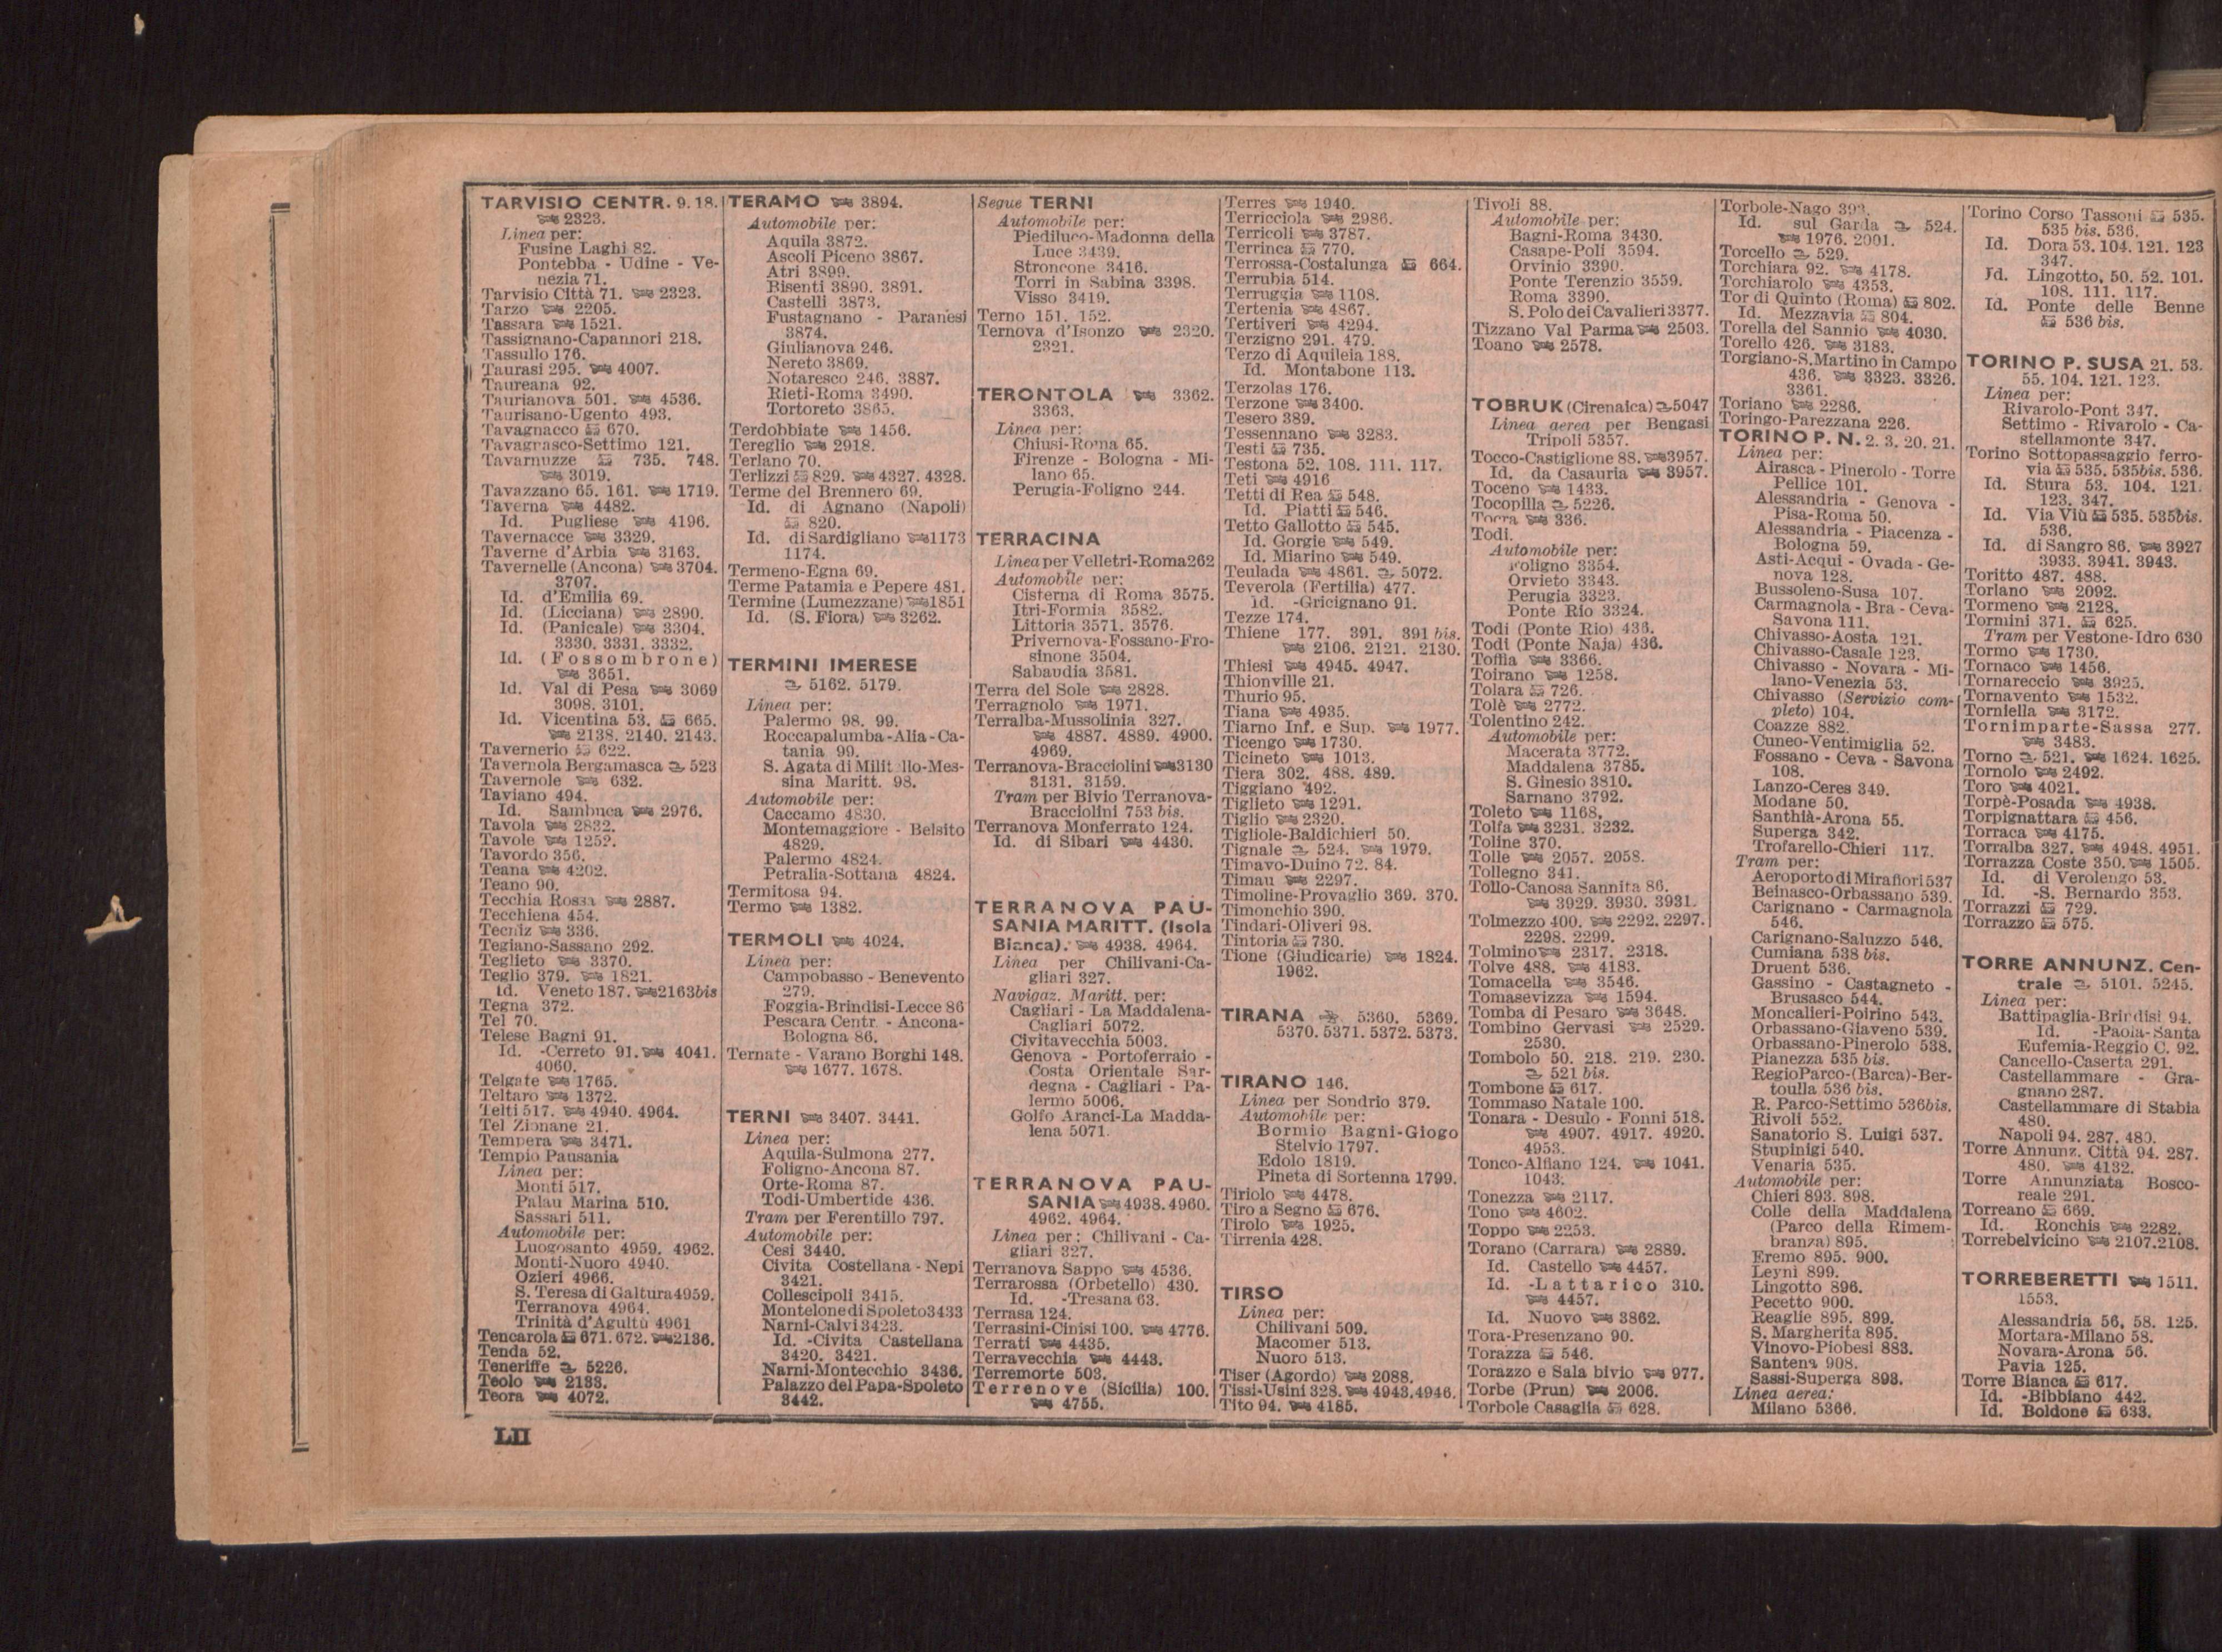 TARVISIO CENTR. 9. 18.
2323.
Linea per:
Fusine Laghi 82.
Pontebba - Udine - Ve-
nezia 71.
Tarvisio Città 71. 2323.
Tarzo 2205.
Tassara 1521.
Tassignano-Capannori 218.
Tassullo 176.
Taurasi 295. 4007.
Taureana 92.
Taurianova 501. 4536.
Taurisano-Ugento 493.
Tavagnacco 670.
Tavagnasco-Settimo 121.
Tavarnuzze 735. 748.
3019.
Tavazzano 65. 161. 1719.
Taverna 4482.
Id. Pugliese 4196.
Tavernacce 3329.
Taverne d'Arbia 3163.
Tavernelle (Ancona) 3704.
3707.
Id. d'Emilia 69.
Id. (Licciana) 2890.
Id. (Panicale) 3304.
3330. 3331. 3332.
Id. (Fossombrone)
3651.
Id. Val di Pesa 3069
3098. 3101.
Id. Vicentina 53. 665.
2138. 2140. 2143.
Tavernerio 622.
Tavernola Bergamasca 523
Tavernole 632.
Taviano 494.
Id. Sambuca 2976.
Tavola 2832.
Tavole 1252.
Tavordo 356.
Teana 4202.
Teano 90.
Tecchia Rossa 2887.
Tecchiena 454.
Tecniz 336.
Tegiano-Sassano 292.
Teglieto 3370.
Teglio 379. 1821.
Id. Veneto 187. 2163bis
Tegna 372.
Tel 70.
Telese Bagni 91.
Id. -Cerreto 91. 4041.
4060.
Telgate 1765.
Teltaro 1372.
Telti 517. 4940. 4964.
Tel Zionane 21.
Tempera 3471.
Tempio Pausania
Linea per:
Monti 517.
Palau Marina 510.
Sassari 511.
Automobile per:
Luogosanto 4959. 4962.
Monti-Nuoro 4940.
Ozieri 4966.
S. Teresa di Galtura 4959.
Terranova 4964.
Trinità d'Agultù 4961
Tencarola 671. 672. 2136.
Tenda 52.
Teneriffe 5226.
Teolo 2133.
Teora 4072.
LII
TERAMO 3894.
Automobile per:
Aquila 3872.
Ascoli Piceno 3867.
Atri 3899.
Bisenti 3890. 3891.
Castelli 3873.
Fustagnano - Paranesi
3874.
Giulianova 246.
Nereto 3869.
Notaresco 246. 3887.
Rieti-Roma 3490.
Tortoreto 3865.
Terdobbiate 1456.
Tereglio 2918.
Terlano 70.
Terlizzi 829. 4327. 4328.
Terme del Brennero 69.
Id. di Agnano (Napoli)
820.
Id. di Sardigliano 1173
1174.
Termeno-Egna 69.
Terme Patamia e Pepere 481.
Termine (Lumezzane) 1851
Id. (S. Fiora) 3262.
TERMINI IMERESE
5162. 5179.
Linea per:
Palermo 98. 99.
Roccapalumba-Alia-Ca-
tania 99.
S. Agata di Militello-Mes-
sina Maritt. 98.
Automobile per:
Caccamo 4830.
Montemaggiore - Belsito
4829.
Palermo 4824.
Petralia-Sottana 4824.
Termitosa 94.
Termo 1382.
TERMOLI 4024.
Linea per:
Campobasso - Benevento
279.
Foggia-Brindisi-Lecce 86
Pescara Centr. - Ancona-
Bologna 86.
Ternate - Varano Borghi 148.
1677. 1678.
TERNI 3407. 3441.
Linea per:
Aquila-Sulmona 277.
Foligno-Ancona 87.
Orte-Roma 87.
Todi-Umbertide 436.
Tram per Ferentillo 797.
Automobile per:
Cesi 3440.
Civita Costellana - Nepi
3421.
Collescipoli 3415.
Montelone di Spoleto 3433
Narni-Calvi 3423.
Id. -Civita Castellana
3420. 3421.
Narni-Montecchio 3436.
Palazzo del Papa-Spoleto
3442.
Segue TERNI
Automobile per:
Piediluco-Madonna della
Luce 3439.
Stroncone 3416.
Torri in Sabina 3398.
Visso 3419.
Terno 151. 152.
Ternova d'Isonzo 2320.
2321.
TERONTOLA 3362.
3363.
Linea per:
Chiusi-Roma 65.
Firenze - Bologna - Mi-
lano 65.
Perugia-Foligno 244.
TERRACINA
Linea per Velletri-Roma 262
Automobile per:
Cisterna di Roma 3575.
Itri-Formia 3582.
Littoria 3571. 3576.
Privernova-Fossano-Fro-
sinone 3504.
Sabaudia 3581.
Terra del Sole 2828.
Terragnolo 1971.
Terralba-Mussolinia 327.
4887. 4889. 4900.
4969.
Terranova-Bracciolini 3130
3131. 3159.
Tram per Bivio Terranova-
Bracciolini 753 bis.
Terranova Monferrato 124.
Id. di Sibari 4430.
TERRANOVA PAU-
SANIA MARITT. (Isola
Bianca). 4938. 4964.
Linea per Chilivani-Ca-
gliari 327.
Navigaz. Maritt. per:
Cagliari - La Maddalena-
Cagliari 5072.
Civitavecchia 5003.
Genova - Portoferraio -
Costa Orientale Sar-
degna - Cagliari - Pa-
lermo 5006.
Golfo Aranci-La Madda-
lena 5071.
TERRANOVA PAU-
SANIA 4938. 4960.
4962. 4964.
Linea per: Chilivani - Ca-
gliari 327.
Terranova Sappo 4536.
Terrarossa (Orbetello) 430.
Id. -Tresana 63.
Terrasa 124.
Terrasini-Cinisi 100. 4776.
Terrati 4435.
Terravecchia 4443.
Terremorte 503.
Terrenove (Sicilia) 100.
4755.
Terres 1940.
Terricciola 2986.
Terricoli 3787.
Terrinca 770.
Terrossa-Costalunga 664.
Terrubia 514.
Terruggia 1108.
Tertenia 4867.
Tertiveri 4294.
Terzigno 291. 479.
Terzo di Aquileia 188.
Id. Montabone 113.
Terzolas 176.
Terzone 3400.
Tesero 389.
Tessennano 3283.
Testi 735.
Testona 52. 108. 111. 117.
Teti 4916
Tetti di Rea 548.
Id. Piatti 546.
Tetto Gallotto 545.
Id. Gorgie 549.
Id. Miarino 549.
Teulada 4861. 5072.
Teverola (Fertilia) 477.
Id. -Gricignano 91.
Tezze 174.
Thiene 177. 391. 391 bis.
2106. 2121. 2130.
Thiesi 4945. 4947.
Thionville 21.
Thurio 95.
Tiana 4935.
Tiarno Inf. e Sup. 1977.
Ticengo 1730.
Ticineto 1013.
Tiera 302. 488. 489.
Tiggiano 492.
Tiglieto 1291.
Tiglio 2320.
Tigliole-Baldichieri 50.
Tignale 524. 1979.
Timavo-Duino 72. 84.
Timau 2297.
Timoline-Provaglio 369. 370.
Timonchio 390.
Tindari-Oliveri 98.
Tintoria 730.
Tione (Giudicarie) 1824.
1962.
TIRANA 5360. 5369.
5370. 5371. 5372. 5373.
TIRANO 146.
Linea per Sondrio 379.
Automobile per:
Bormio Bagni-Giogo
Stelvio 1797.
Edolo 1819.
Pineta di Sortenna 1799.
Tiriolo 4478.
Tiro a Segno 676.
Tirolo 1925.
Tirrenia 428.
TIRSO
Linea per:
Chilivani 509.
Macomer 513.
Nuoro 513.
Tiser (Agordo) 2088.
Tissi-Usini 328. 4943. 4946.
Tito 94. 4185.
Tivoli 88.
Automobile per:
Bagni-Roma 3430.
Casape-Poli 3594.
Orvinio 3390.
Ponte Terenzio 3559.
Roma 3390.
S. Polo dei Cavalieri 3377.
Tizzano Val Parma 2503.
Toano 2578.
TOBRUK (Cirenaica) 5047
Linea aerea per Bengasi
Tripoli 5357.
Tocco-Castiglione 88. 3957.
Id. da Casauria 3957.
Toceno 1433.
Tocopilla 5226.
Tocra 336.
Todi.
Automobile per:
Foligno 3354.
Orvieto 3343.
Perugia 3323.
Ponte Rio 3324.
Todi (Ponte Rio) 436.
Todi (Ponte Naja) 436.
Toffia 3366.
Toirano 1258.
Tolara 726.
Tolè 2772.
Tolentino 242.
Automobile per:
Macerata 3772.
Maddalena 3785.
S. Ginesio 3810.
Sarnano 3792.
Toleto 1168.
Tolfa 3231. 3232.
Toline 370.
Tolle 2057. 2058.
Tollegno 341.
Tollo-Canosa Sannita 86.
3929. 3930. 3931.
Tolmezzo 400. 2292. 2297.
2298. 2299.
Tolmino 2317. 2318.
Tolve 488. 4183.
Tomacella 3546.
Tomasevizza 1594.
Tomba di Pesaro 3648.
Tombino Gervasi 2529.
2530.
Tombolo 50. 218. 219. 230.
521 bis.
Tombone 617.
Tommaso Natale 100.
Tonara - Desulo - Fonni 518.
4907. 4917. 4920.
4953.
Tonco-Alfiano 124. 1041.
1043.
Tonezza 2117.
Tono 4602.
Toppo 2253.
Torano (Carrara) 2889.
Id. Castello 4457.
Id. -Lattarico 310.
4457.
Id. Nuovo 3862.
Tora-Presenzano 90.
Torazza 546.
Torazzo e Sala bivio 977.
Torbe (Prun) 2006.
Torbole Casaglia 628.
Torbole-Nago 393.
Id. sul Garda 524.
1976. 2001.
Torcello 529.
Torchiara 92. 4178.
Torchiarolo 4353.
Tor di Quinto (Roma) 802.
Id. Mezzavia 804.
Torella del Sannio 4030.
Torello 426. 3183.
Torgiano-S. Martino in Campo
436. 3323. 3326.
3361.
Toriano 2286.
Toringo-Parezzana 226.
TORINO P. N. 2. 3. 20. 21.
Linea per:
Airasca - Pinerolo - Torre
Pellice 101.
Alessandria - Genova -
Pisa-Roma 50.
Alessandria - Piacenza -
Bologna 59.
Asti-Acqui - Ovada - Ge-
nova 128.
Bussoleno-Susa 107.
Carmagnola - Bra - Ceva-
Savona 111.
Chivasso-Aosta 121.
Chivasso-Casale 123.
Chivasso - Novara - Mi-
lano-Venezia 53.
Chivasso (Servizio com-
pleto) 104.
Coazze 882.
Cuneo-Ventimiglia 52.
Fossano - Ceva - Savona
108.
Lanzo-Ceres 349.
Modane 50.
Santhià-Arona 55.
Superga 342.
Trofarello-Chieri 117.
Tram per:
Aeroporto di Mirafiori 537
Beinasco-Orbassano 539.
Carignano - Carmagnola
546.
Carignano-Saluzzo 546.
Cumiana 538 bis.
Druent 536.
Gassino - Castagneto -
Brusasco 544.
Moncalieri-Poirino 543.
Orbassano-Giaveno 539.
Orbassano-Pinerolo 538.
Pianezza 535 bis.
Regio Parco-(Barca)-Ber-
toulla 536 bis.
R. Parco-Settimo 536bis.
Rivoli 552.
Sanatorio S. Luigi 537.
Stupinigi 540.
Venaria 535.
Automobile per:
Chieri 893. 898.
Colle della Maddalena
(Parco della Rimem-
branza) 895.
Eremo 895. 900.
Leyni 899.
Lingotto 896.
Pecetto 900.
Reaglie 895. 899.
S. Margherita 895.
Vinovo-Piobesi 883.
Santena 908.
Sassi-Superga 893.
Linea aerea:
Milano 5366.
Torino Corso Tassoni 535.
535 bis. 536.
Id. Dora 53. 104. 121. 123
347.
Id. Lingotto, 50. 52. 101.
108. 111. 117.
Id. Ponte delle Benne
536 bis.
TORINO P. SUSA 21. 53.
55. 104. 121. 123.
Linea per:
Rivarolo-Pont 347.
Settimo - Rivarolo - Ca-
stellamonte 347.
Torino Sottopassaggio ferro-
via 535. 535bis. 536.
Id. Stura 53. 104. 121.
123. 347.
Id. Via Viù 535. 535bis.
536.
Id. di Sangro 86. 3927
3933. 3941. 3943.
Toritto 487. 488.
Torlano 2092.
Tormeno 2128.
Tormini 371. 625.
Tram per Vestone-Idro 630
Tormo 1730.
Tornaco 1456.
Tornareccio 3925.
Tornavento 1532.
Torniella 3172.
Tornimparte-Sassa 277.
3483.
Torno 521. 1624. 1625.
Tornolo 2492.
Toro 4021.
Torpè-Posada 4938.
Torpignattara 456.
Torraca 4175.
Torralba 327. 4948. 4951.
Torrazza Coste 350. 1505.
Id. di Verolengo 53.
Id. -S. Bernardo 353.
Torrazzi 729.
Torrazzo 575.
TORRE ANNUNZ. Cen-
trale 5101. 5245.
Linea per:
Battipaglia-Brindisi 94.
Id. -Paola-Santa
Eufemia-Reggio C. 92.
Cancello-Caserta 291.
Castellammare - Gra-
gnano 287.
Castellammare di Stabia
480.
Napoli 94. 287. 480.
Torre Annunz. Città 94. 287.
480. 4132.
Torre Annunziata Bosco-
reale 291.
Torreano 669.
Id. Ronchis 2282.
Torrebelvicino 2107. 2108.
TORREBERETTI 1511.
1553.
Alessandria 56. 58. 125.
Mortara-Milano 58.
Novara-Arona 56.
Pavia 125.
Torre Bianca 617.
Id. -Bibbiano 442.
Id. Boldone 633.